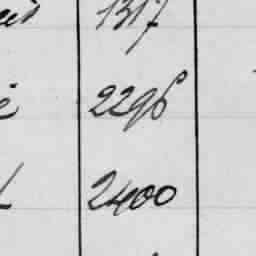 1317
2296
2400